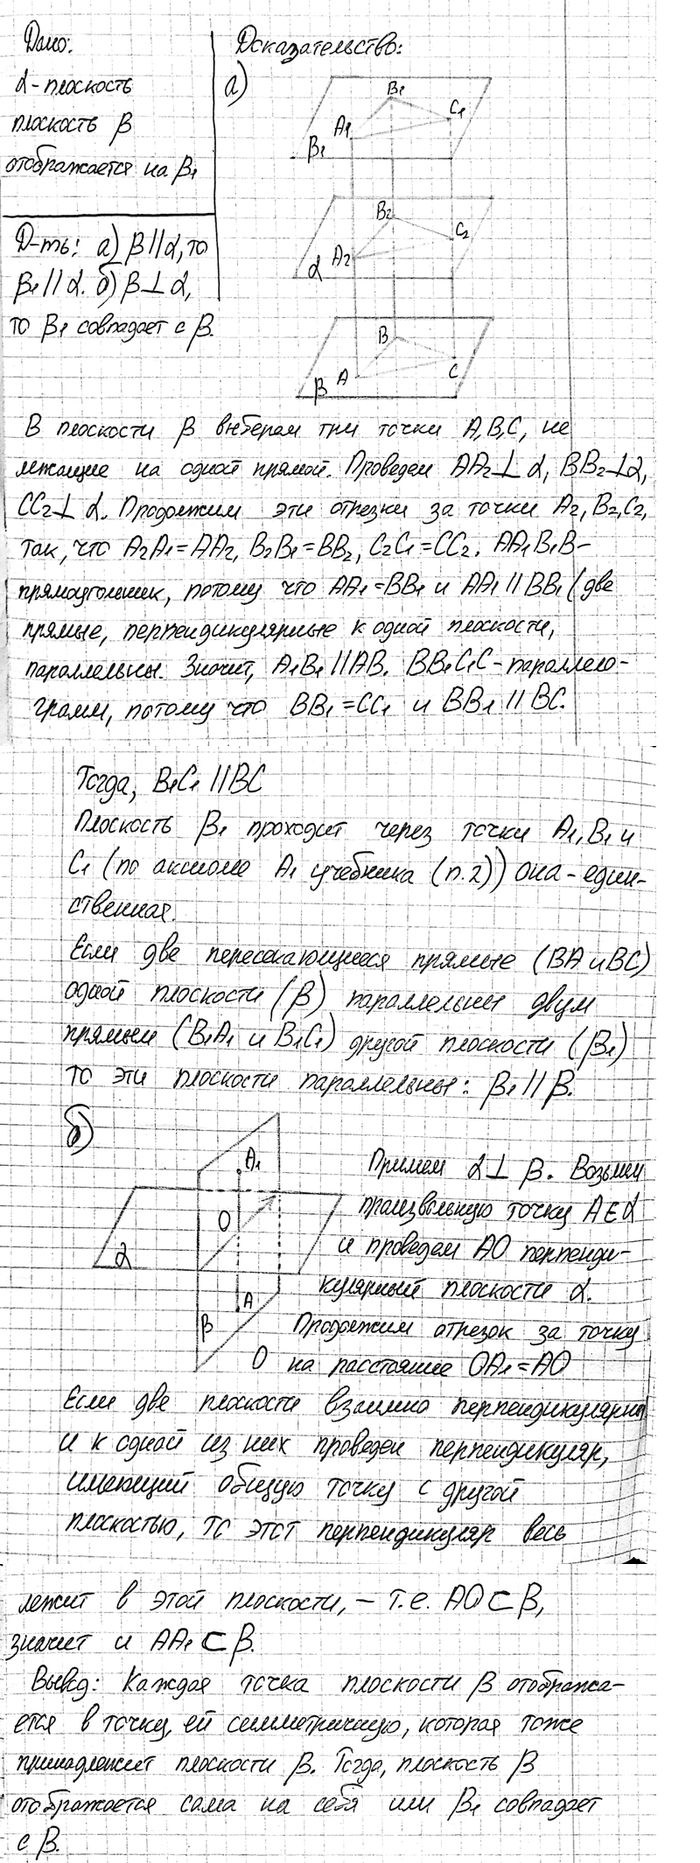 Дано:
α-плоскость
плоскость β
отображается на β₁
Д-ть: а) β || α, то
β₁ || α. б) β ⊥ α,
то β₁ совпадает с β.
Доказательство:
а)
B₁
C₁
A₁
β₁
B₂
C₂
A₂
α
B
C
A
β
В плоскости β выберем три точки A, B, C, не
лежащие на одной прямой. Проведем AA₂ ⊥ α, BB₂ ⊥ α,
CC₂ ⊥ α. Продолжим эти отрезки за точки A₂, B₂, C₂,
так, что A₂A₁ = AA₂, B₂B₁ = BB₂, C₂C₁ = CC₂. AA₁B₁B-
прямоугольник, потому что AA₁ = BB₁ и AA₁ || BB₁ (две
прямые, перпендикулярные к одной плоскости,
параллельны. Значит, A₁B₁ || AB. BB₁C₁C - параллело-
грамм, потому что BB₁ = CC₁ и BB₁ || BC.
Тогда, B₁C₁ || BC
Плоскость β₁ проходит через точки A₁, B₁ и
C₁ (по аксиоме A₁ учебника (п.2)) она - един-
ственная.
Если две пересекающиеся прямые (BA и BC)
одной плоскости (β) параллельны двум
прямым (B₁A₁ и B₁C₁) другой плоскости (β₁)
то эти плоскости параллельны: β₁ || β.
б)
A₁
O
α
A
β
Примем α ⊥ β. Возьмем
произвольную точку A ∈ α
и проведем AO перпенди-
кулярный плоскости α.
Продолжим отрезок за точку
O на расстояние OA₁ = AO
Если две плоскости взаимно перпендикулярны
и к одной из них проведен перпендикуляр,
имеющий общую точку с другой
плоскостью, то этот перпендикуляр весь
лежит в этой плоскости, - т.е. AO ⊂ β,
значит и AA₁ ⊂ β.
Вывод: Каждая точка плоскости β отобража-
ется в точку, ей симметричную, которая тоже
принадлежит плоскости β. Тогда, плоскость β
отображается сама на себя или β₁ совпадает
с β.